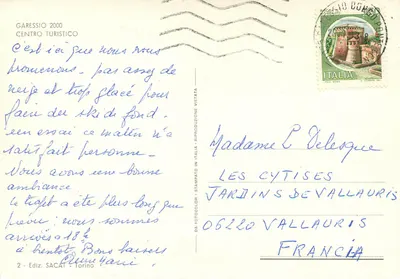 GARESSIO 2000
CENTRO TURISTICO
C'est ici que nous nous
promenons - pas assez de
neige et trop glacé pour
faire du ski de fond.
un essai ce matin n'a
satisfait personne -
Nous avons une bonne
ambiance.
Le trajet a été plus long que
prévu: nous sommes
arrivés à 18h
à bientôt Bons baisers
2 - Ediz. SACAT - Torino
ITALIA
Madame L
LES CYTISES
JARDINS DE VALLAURIS
06220 VALLAURIS
FRANCIA